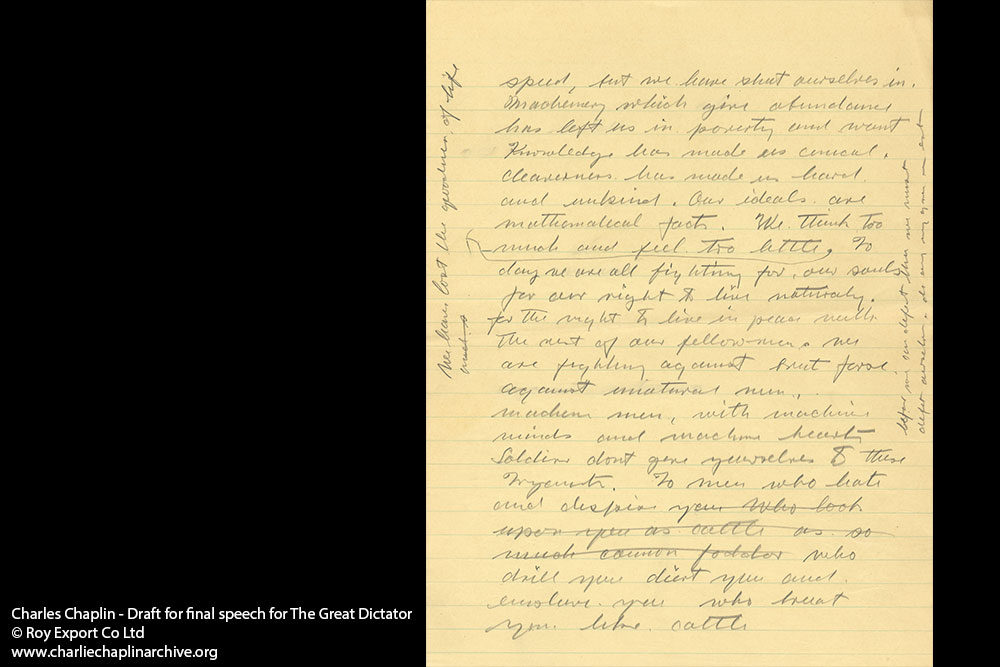 speed, but we have shut ourselves in.
Machenery which give abundance
has left us in poverty and want
Knowledge has made us cinical.
cleaverness has made us hard
and unkind. Our ideals are
mathematical facts. We think too
much and feel too little, To
day we are all fighting for, our souls
for our right to live naturaly.
for the right to live in peace with
the rest of our fellow-men. we
are fighting against brut forse.
against unatural men,
machine men, with machine
minds and machine hearts
Soldiers dont give yourselves to these
Tryants. To men who hate
and despise you Who look
upon you as cattle as so
much cannon fodder who
drill you diert you and
enslave you who treat
you like cattle
We have lost the goodness of life
before we can defeet them we must
defeet ourselves
Charles Chaplin - Draft for final speech for The Great Dictator
© Roy Export Co Ltd
www.charliechaplinarchive.org